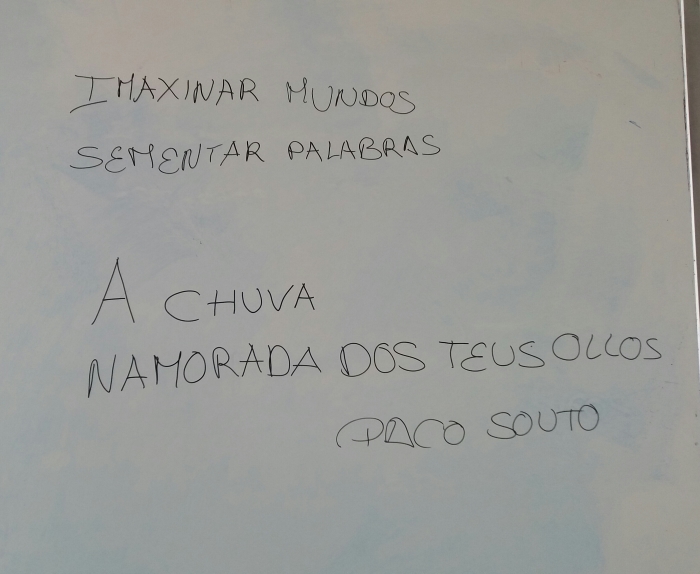 IMAXINAR MUNDOS
SEMENTAR PALABRAS
A CHUVA
NAMORADA DOS TEUS OLLOS
PACO SOUTO